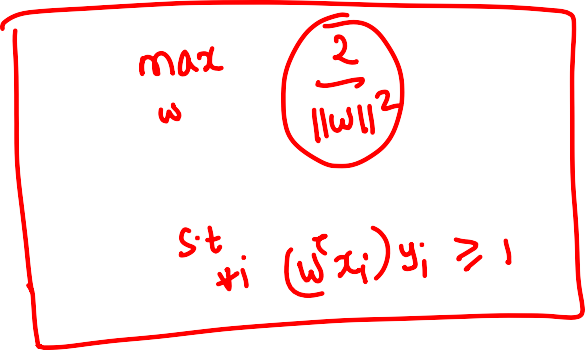 max 2
w ||w||²
s.t ∀i (wᵀxᵢ)yᵢ ≥ 1